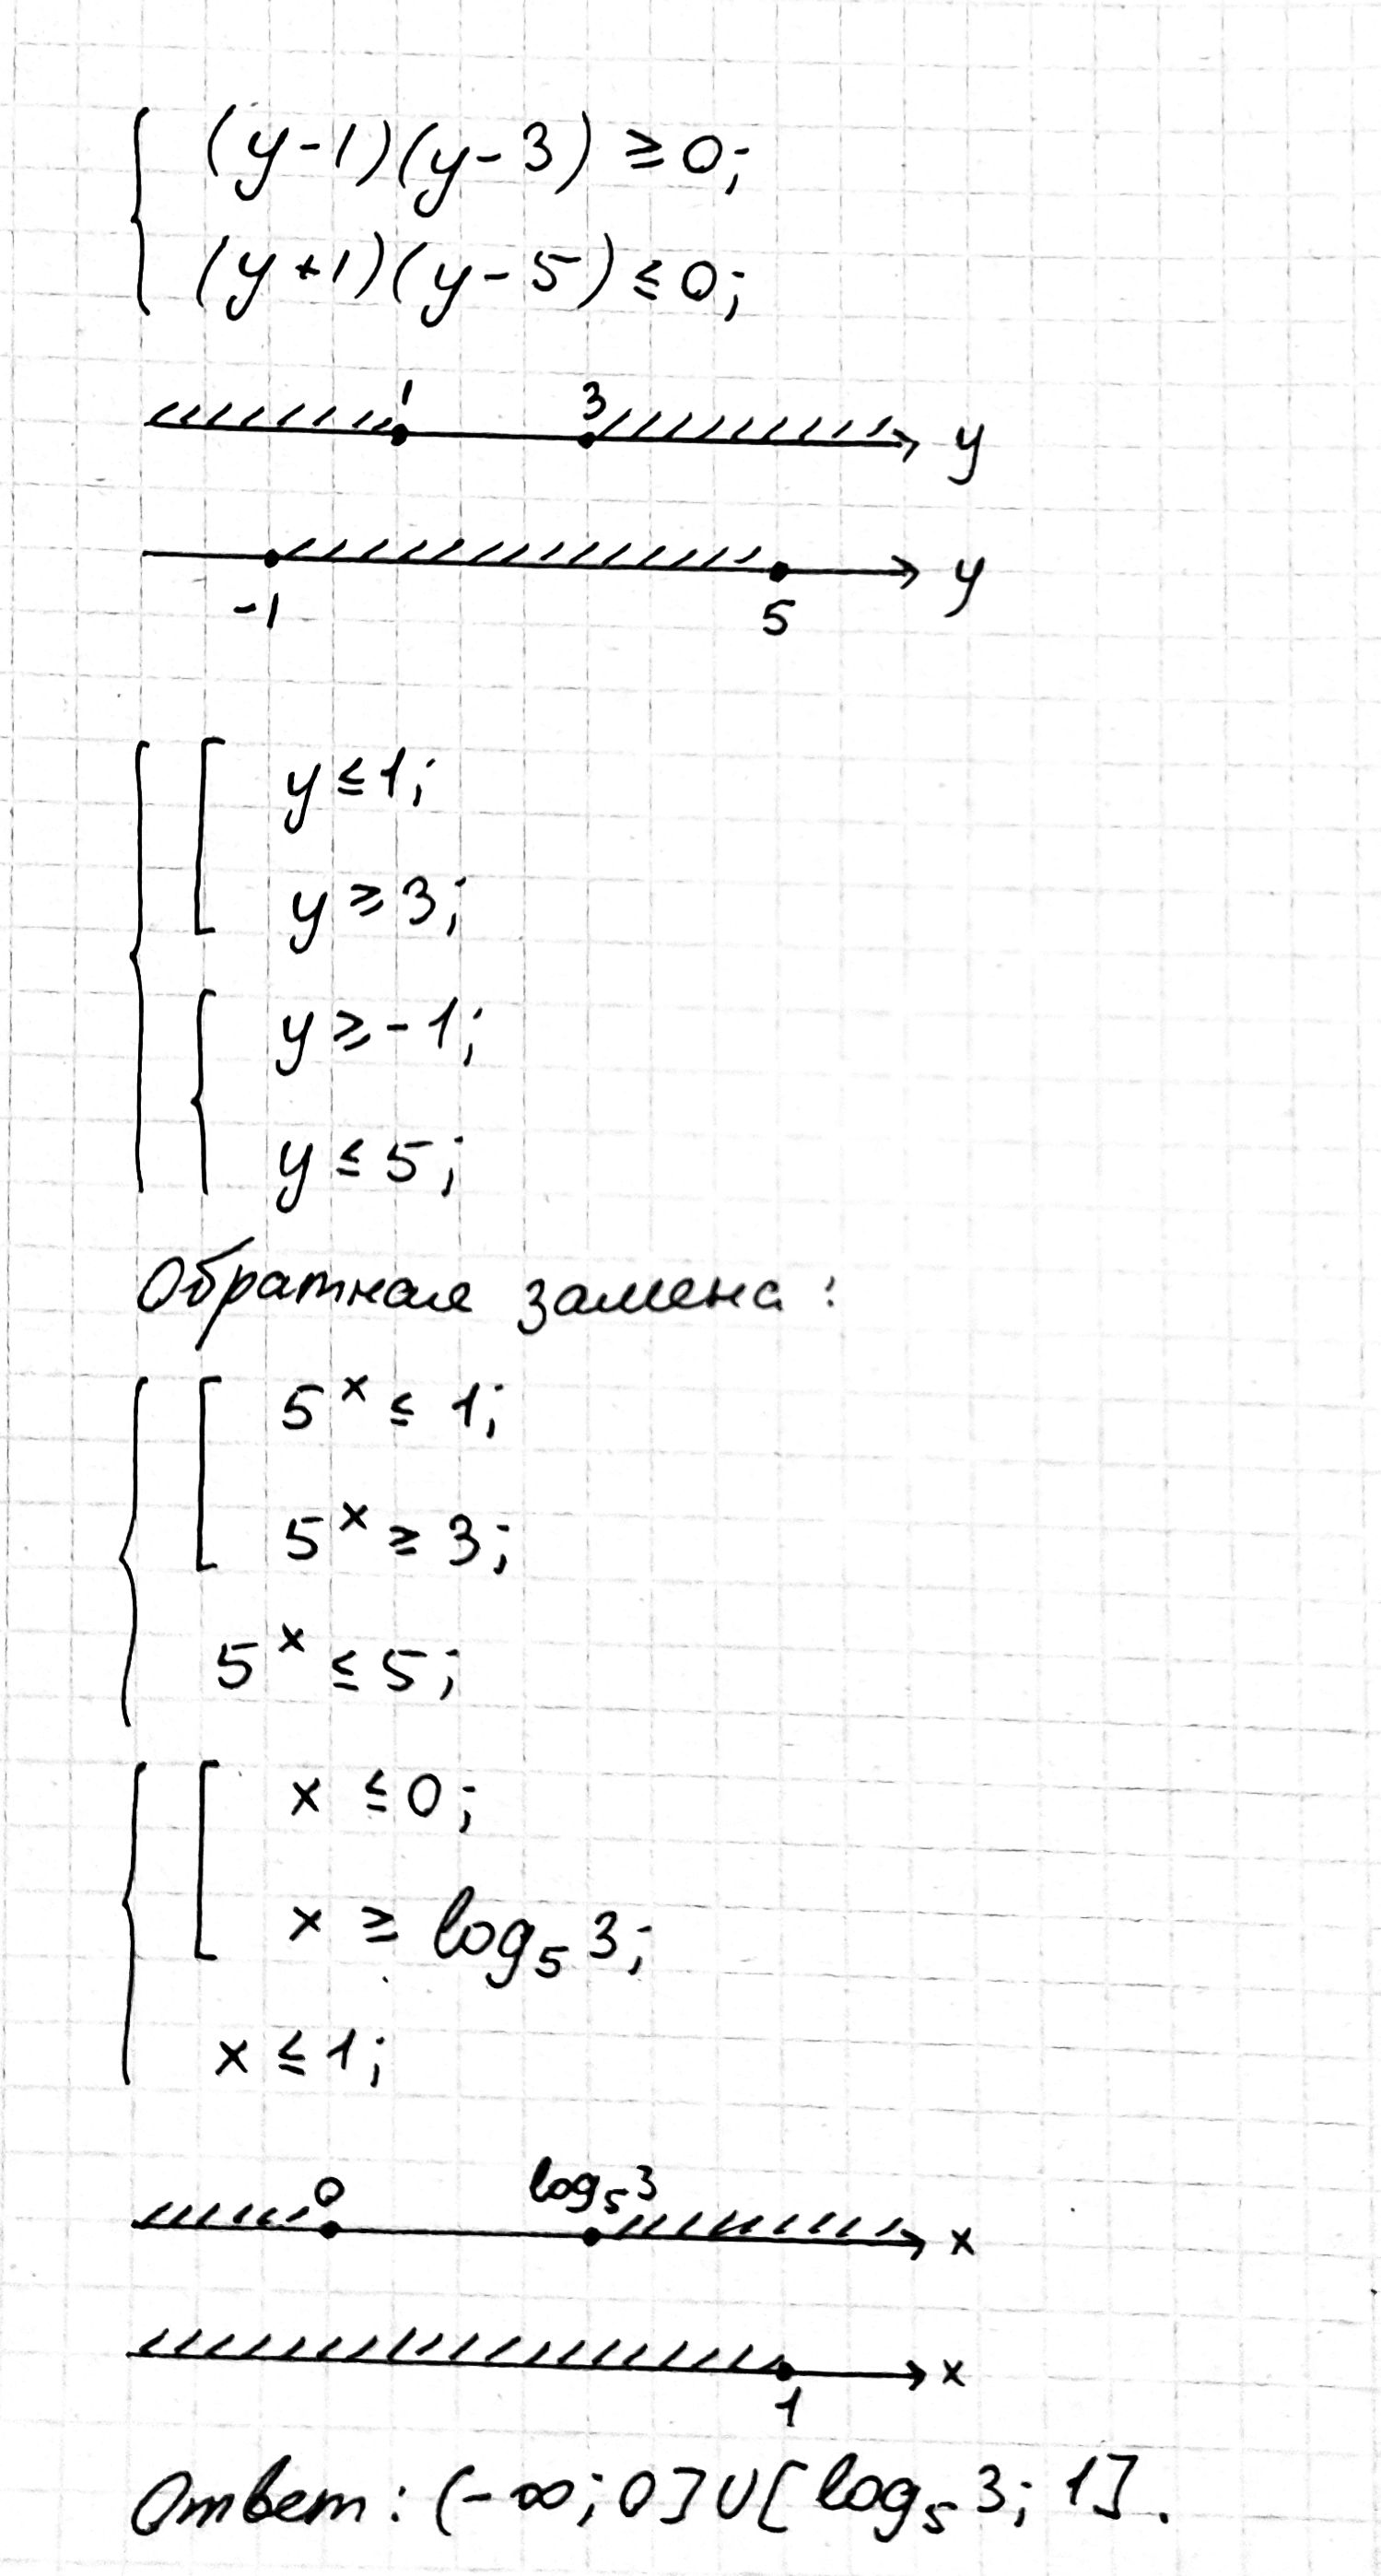 (y-1)(y-3) ≥ 0;
(y+1)(y-5) ≤ 0;
1 3 y
-1 5 y
y ≤ 1;
y ≥ 3;
y ≥ -1;
y ≤ 5;
Обратная замена:
5^x ≤ 1;
5^x ≥ 3;
5^x ≤ 5;
x ≤ 0;
x ≥ log₅ 3;
x ≤ 1;
0 log₅ 3 x
1 x
Ответ: (-∞; 0] ∪ [log₅ 3; 1].